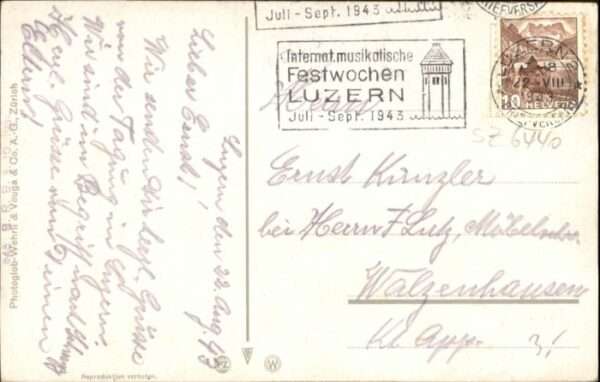 Juli - Sept. 1943
Internat. musikalische
Festwochen
LUZERN
Juli - Sept. 1943
LUZERN
22. VIII
10 HELVETIA
SZ 6440
Luzern den 22. Aug. 43
Lieber Ernst!
Wir senden Dir herzl. Grüsse
von der Tagung in Luzern.
Wir sind im Begriff nach
Herzl. Grüsse von Deinen
Eltern!
Ernst Künzler
bei Herrn F. Lutz, Möbelschr.
Walzenhausen
Kt. App.
Photoglob-Wehrli & Vouga & Co. A.-G. Zürich
Reproduktion verboten.